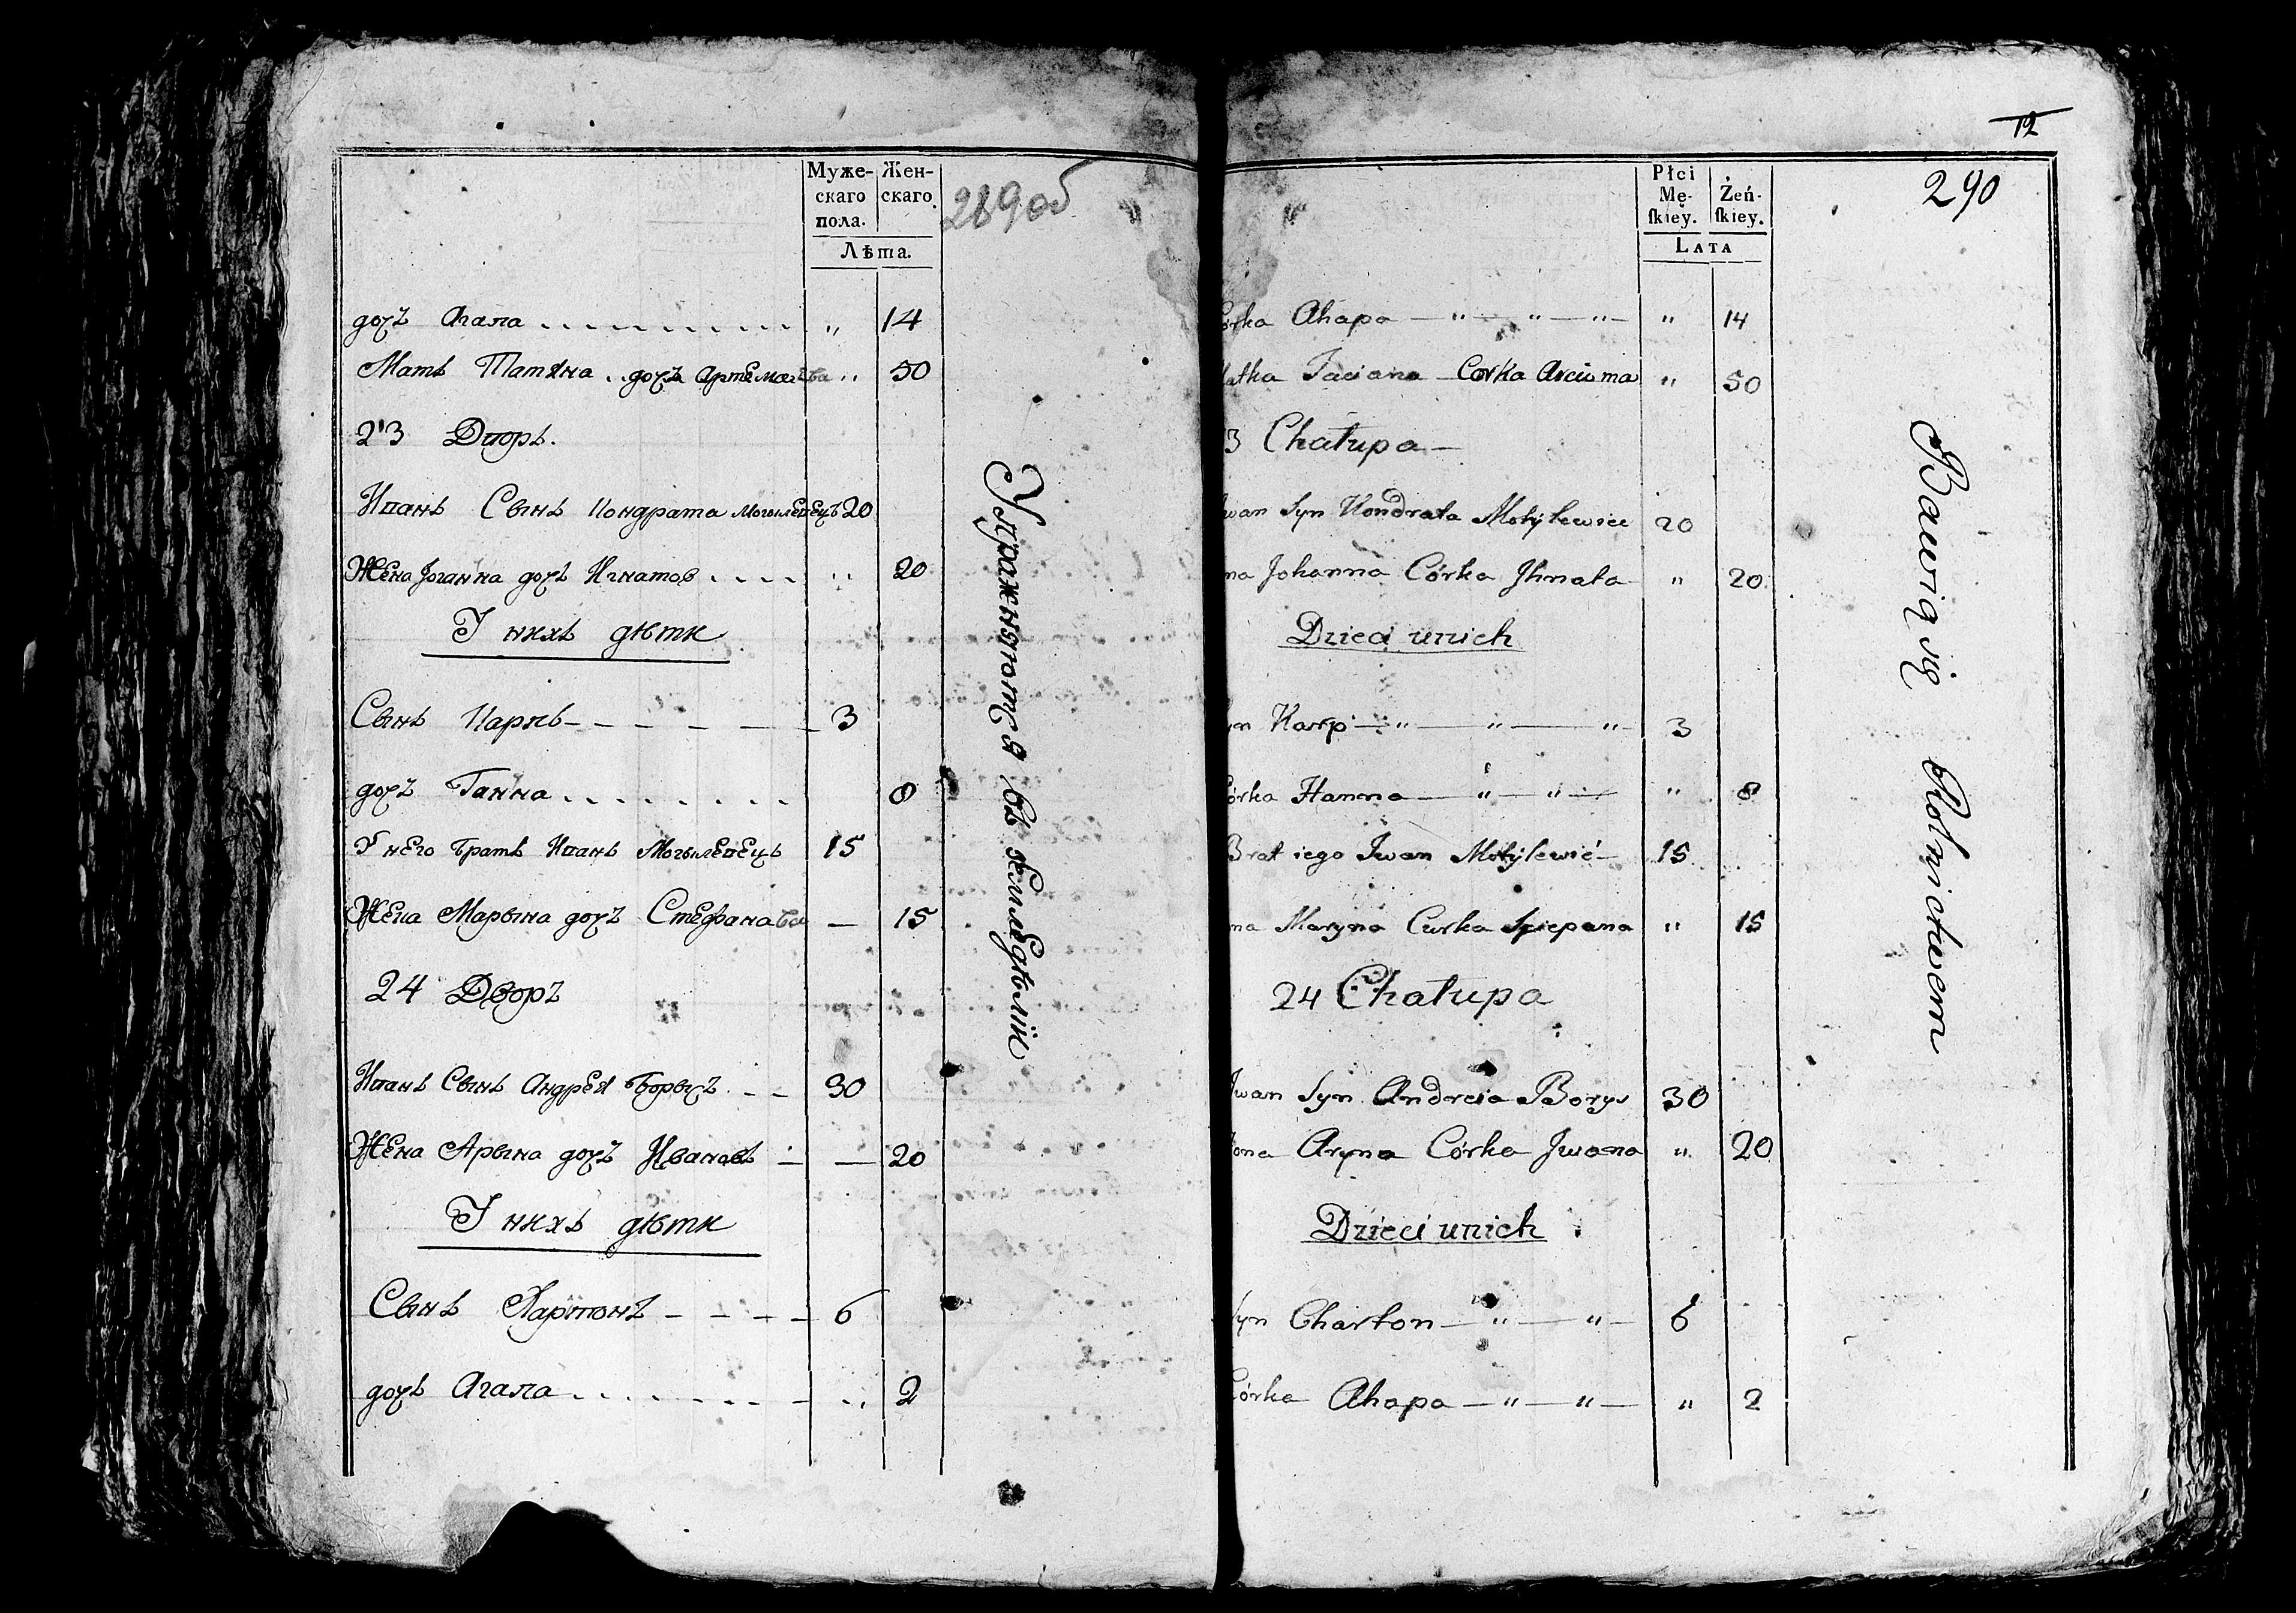 Муже-
скаго
пола.
Жен-
скаго.
Лѣта.
289 об
дочъ Агапа 14
Мать Татяна дочъ Артемова 50
23 Дворъ.
Иванъ Сынъ Кондрата Могилевецъ 20
Жена Іоганна дочъ Игнатов 20
У нихъ дѣти
Сынъ Карпъ 3
дочъ Ганна 8
У него братъ Иванъ Могылевецъ 15
Жена Марына дочъ Стефанова — 15
24 Дворъ
Иванъ Сынъ Андрея Борысъ 30
Жена Арына дочъ Иванова — 20
У нихъ дѣти
Сынъ Харитонъ 6
дочъ Агапа 2
Упражняются въ земледѣліи
12
290
Płci
Mę-
ſkiey.
Żeń-
ſkiey.
LATA
Córka Ahapa — " — " — " — " 14
Matka Taciana Corka Arciuma " 50
3 Chałupa —
Iwan Syn Kondrata Motylewicc 20
na Johanna Córka Jhnata " 20
Dzieci unich
Syn Karp — " — " — " 3
Córka Hanna — " — " — " 8
Brat iego Iwan Motylewić — 15
na Maryna Curka Sciepana " 15
24 Chałupa
Iwan Syn Andreia Borys 30
Żona Aryna Córka Jwana " 20
Dzieci unich
Syn Charton — " — " — 6
Córka Ahapa — " — " — " 2
Bawią się Rolnictwem